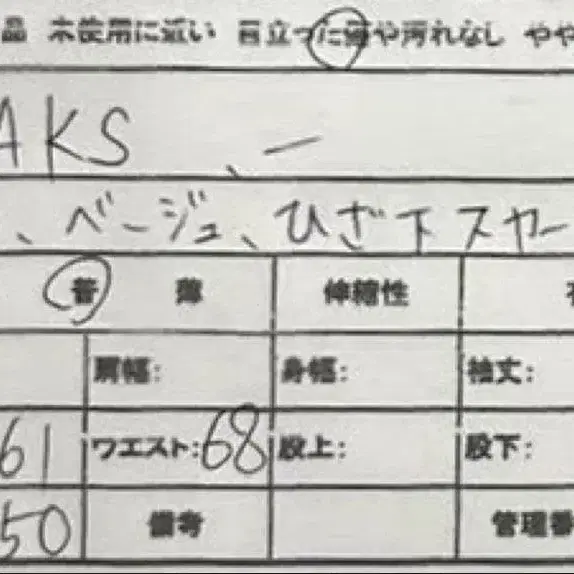 品 未使用に近い 目立った傷や汚れなし やや
AKS 、一
、ベージュ、ひざ下スカー
普 薄 伸縮性
肩幅: 身幅: 袖丈:
61 ウエスト:68 股上: 股下:
50 備考 管理番